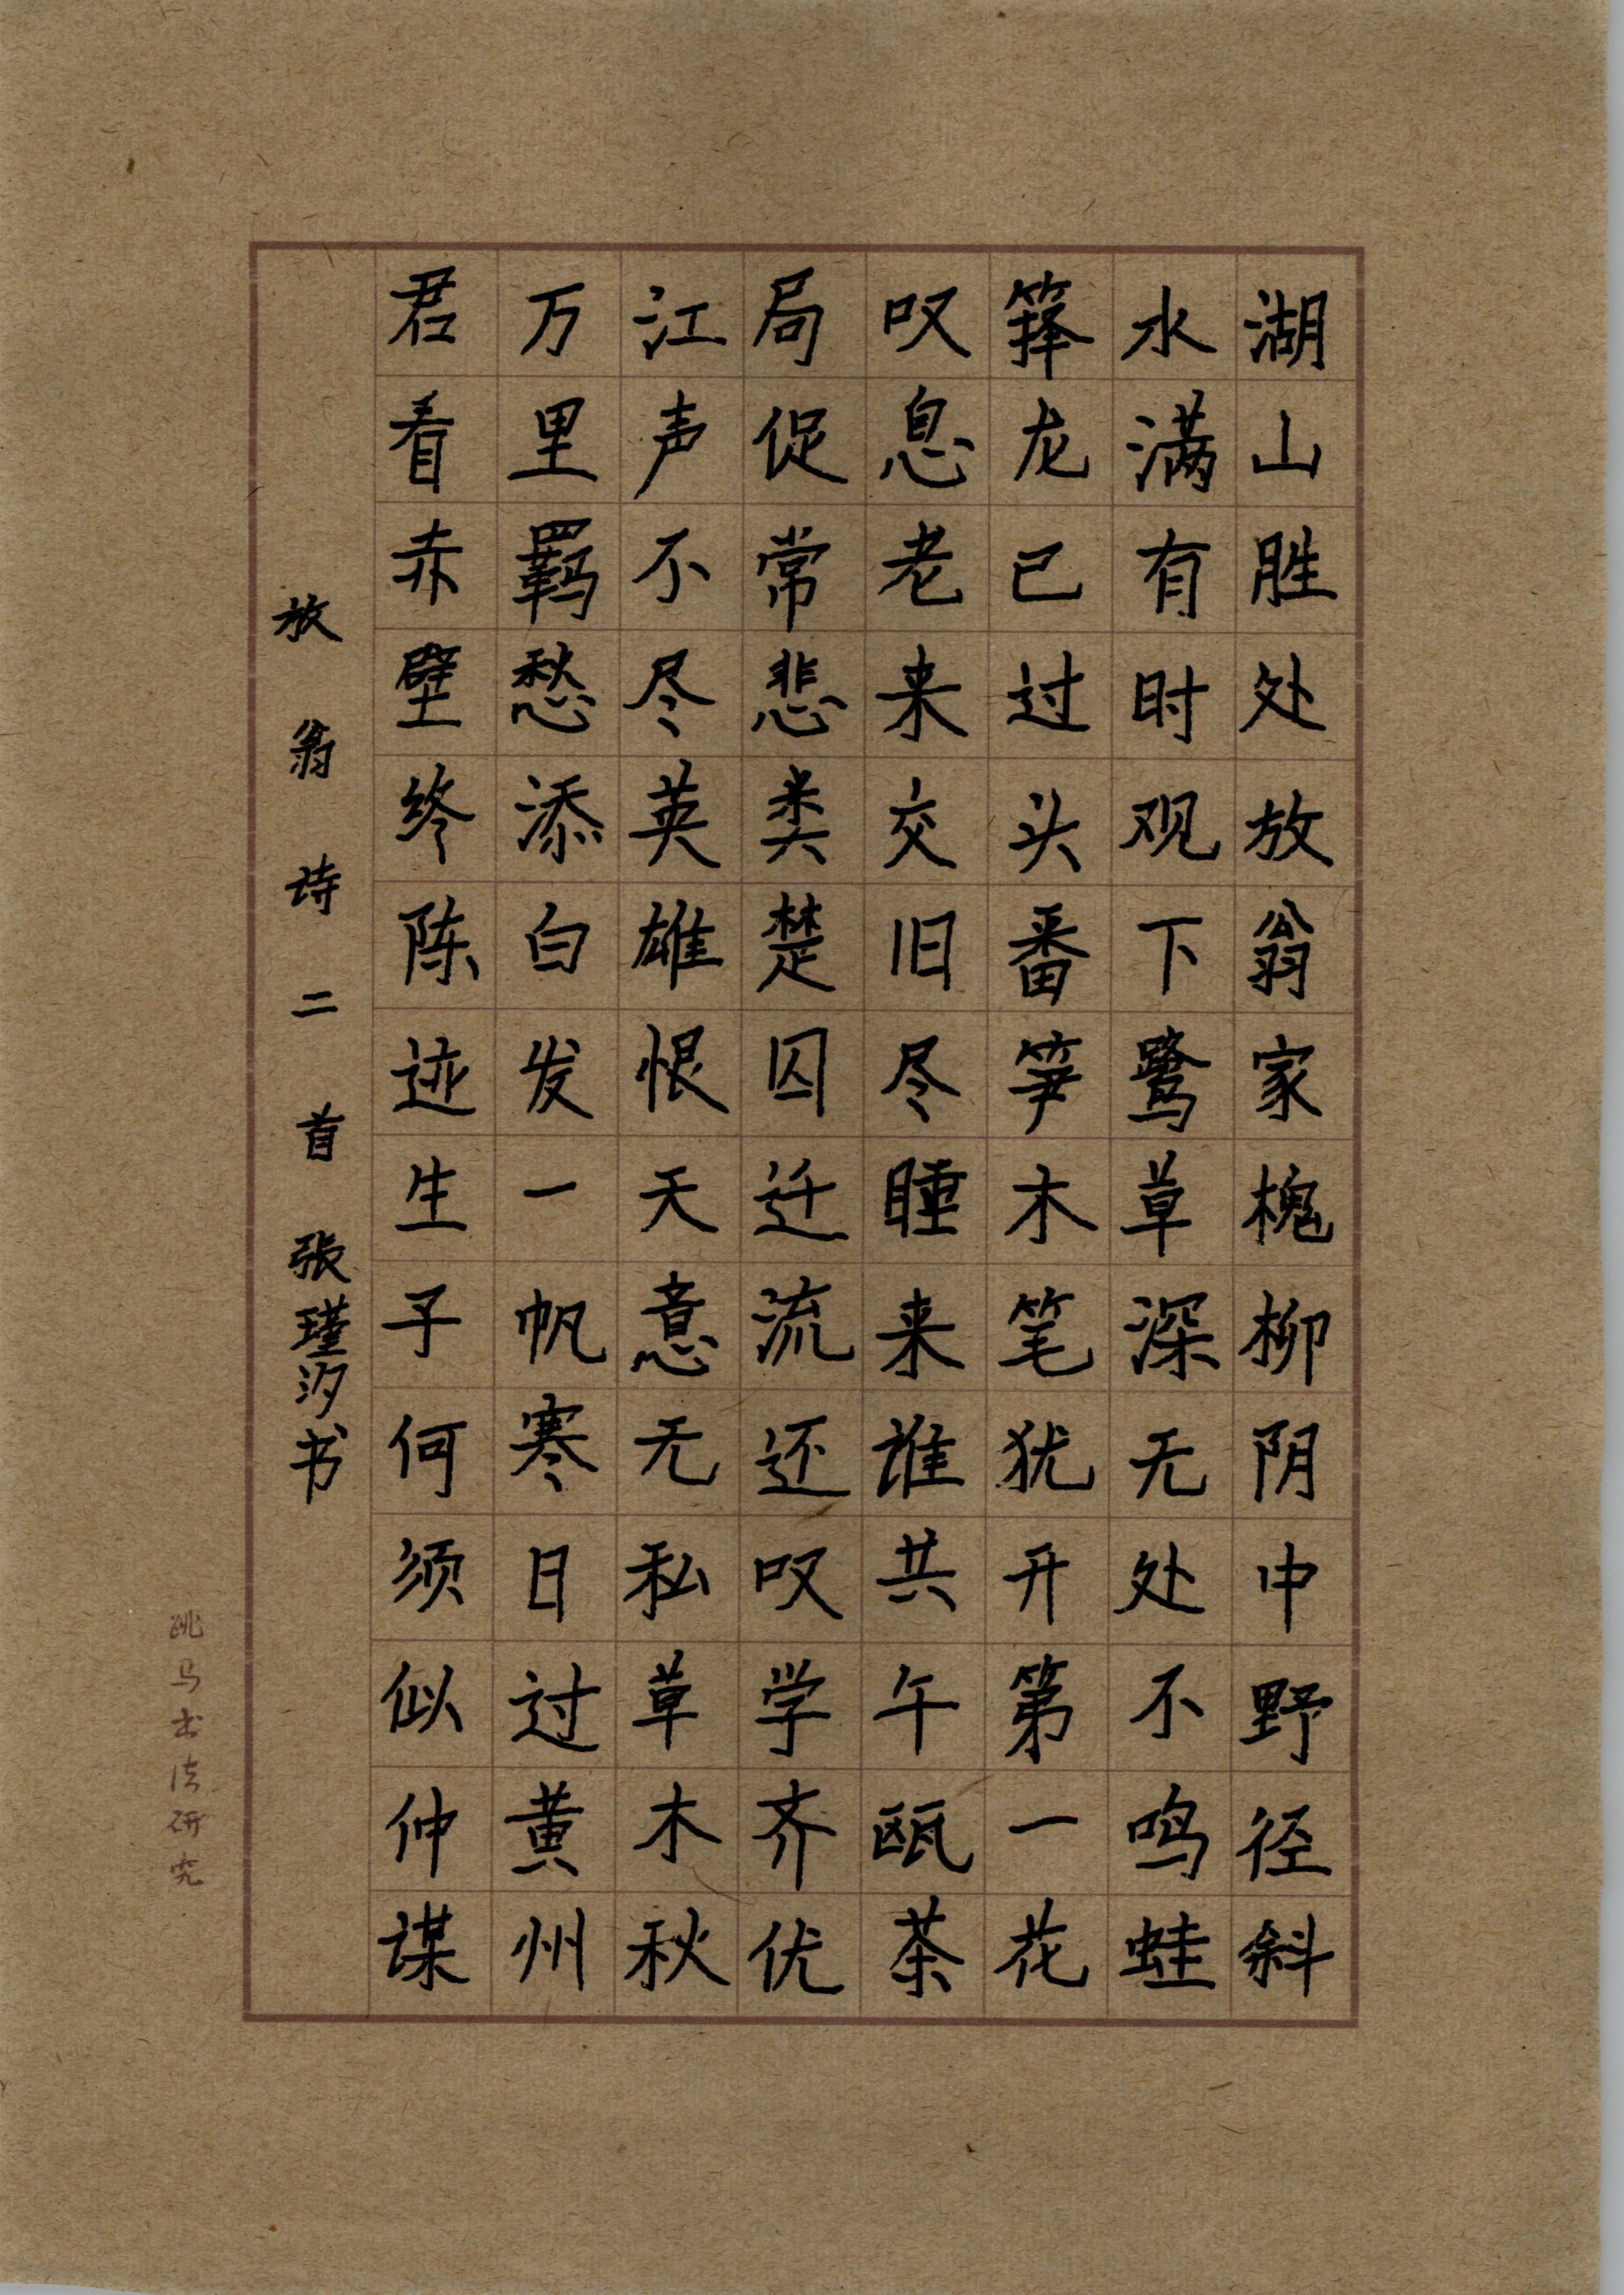 湖山胜处放翁家槐柳阴中野径斜
水满有时观下鹭草深无处不鸣蛙
箨龙已过头番笋木笔犹开第一花
叹息老来交旧尽睡来谁共午瓯茶
局促常悲类楚囚迁流还叹学齐优
江声不尽英雄恨天意无私草木秋
万里羁愁添白发一帆寒日过黄州
君看赤壁终陈迹生子何须似仲谋
放翁诗二首 张瑾汐书